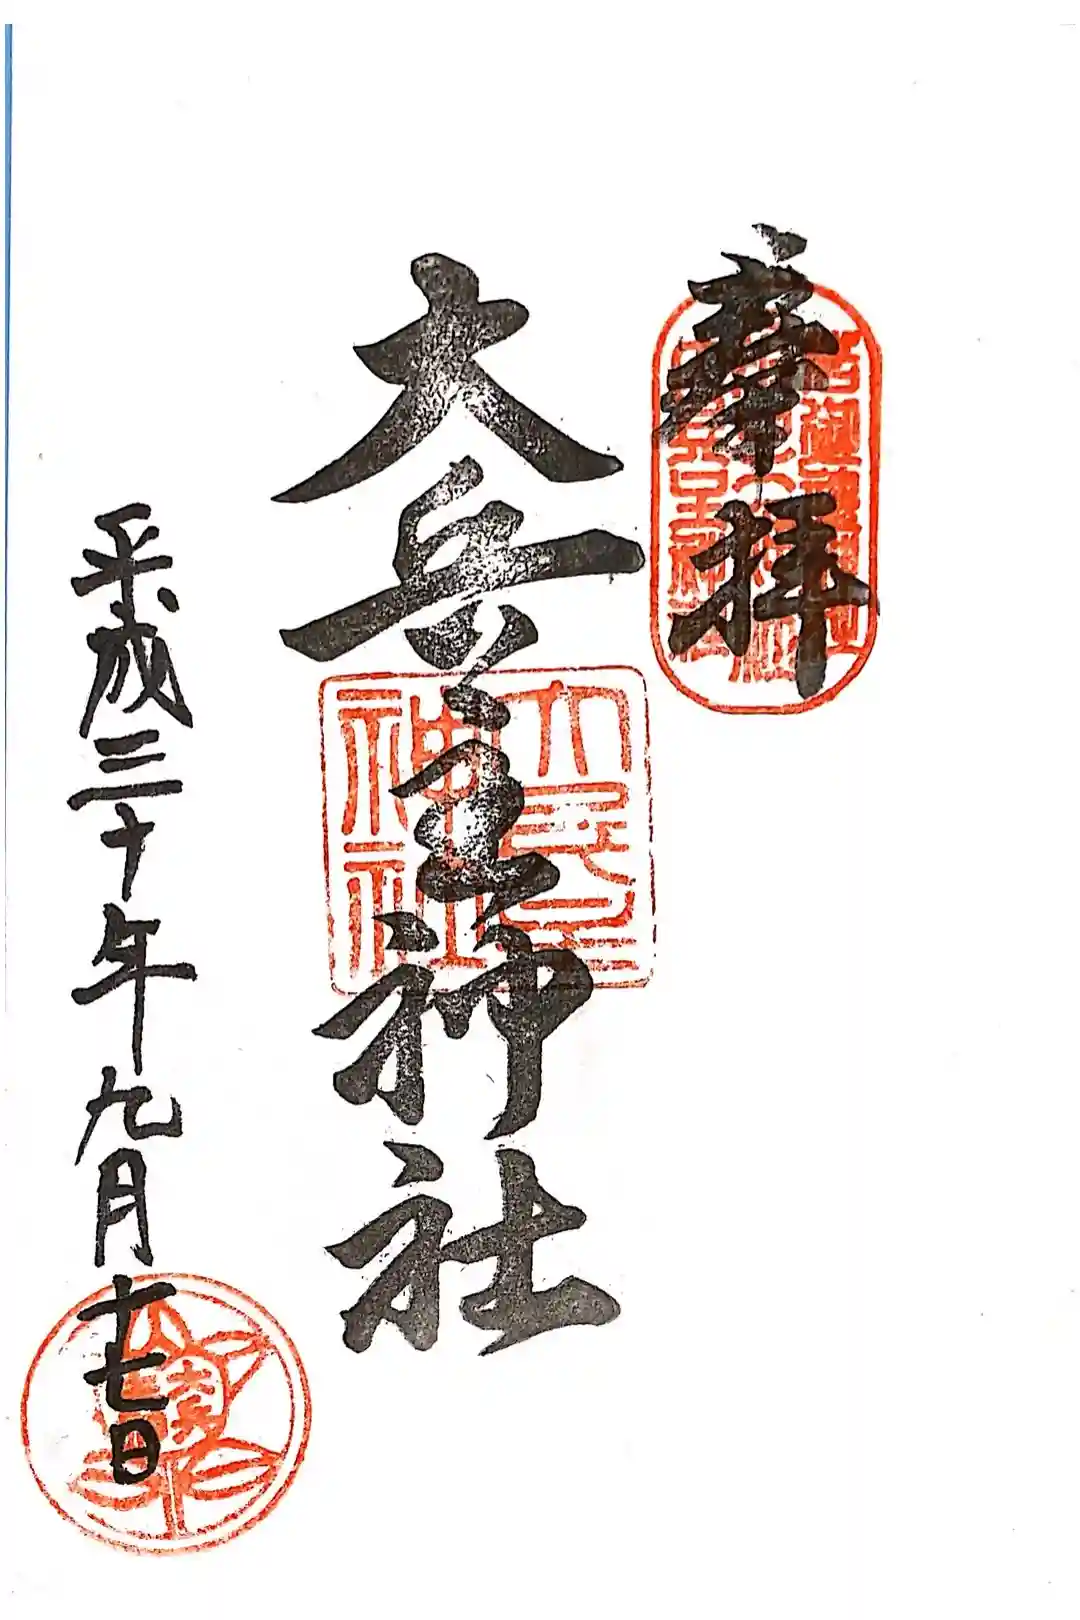 奉拝
大兵主神社
大兵主
神社
平成三十年九月十七日